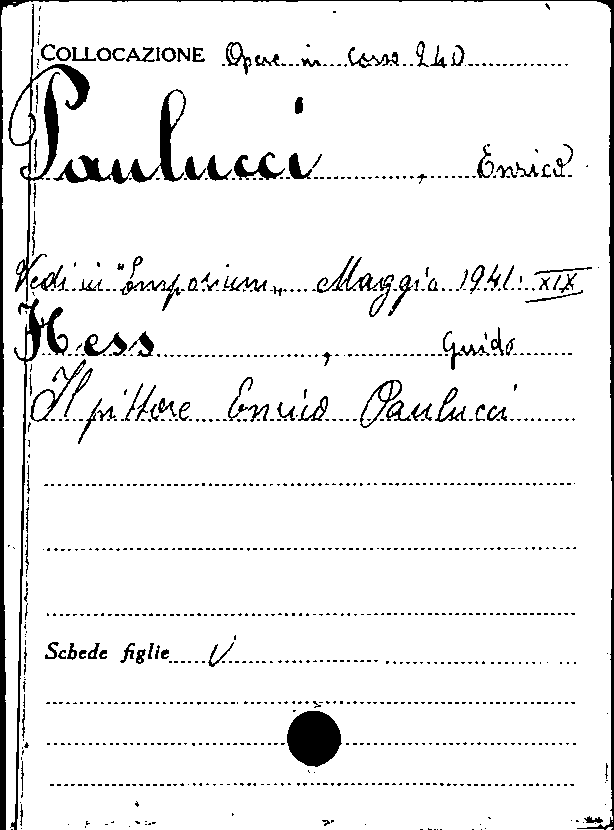 COLLOCAZIONE Opere in corso 240
Paulucci, Enrico
Vedi in "Emporium" Maggio 1941. XIX
Hess, Guido
Il pittore Enrico Paulucci
Schede figlie V